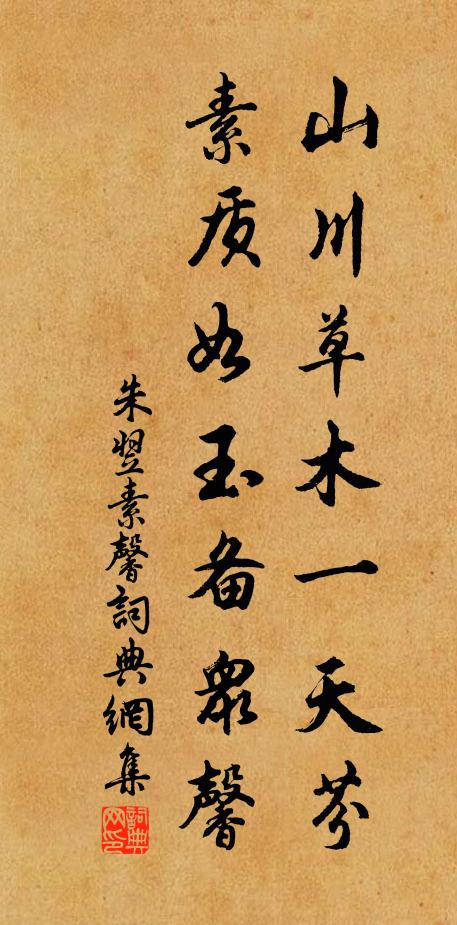 山川草木一天芬
素质如玉备眾馨
朱翌素馨詞典網集
詞典网印